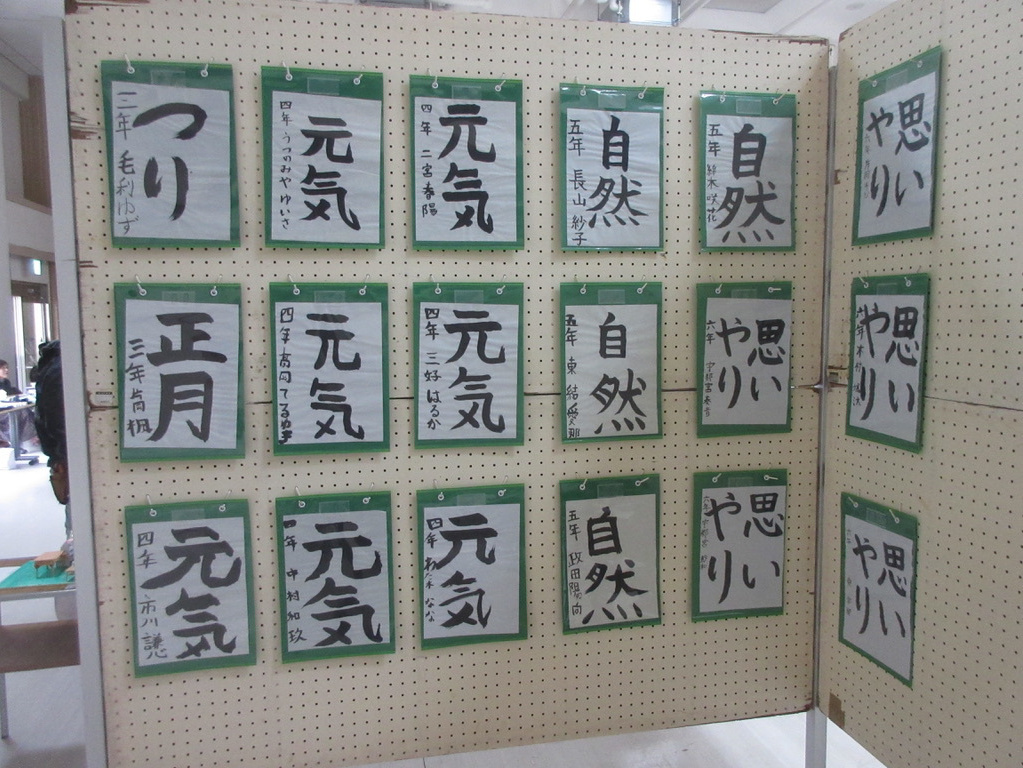 つり
三年 毛利ゆず
元気
四年 うつのみや ゆいさ
元気
四年 二宮春陽
自然
五年 長山 紗子
自然
五年 鈴木咲花
思い
やり
正月
三年 片桐
元気
四年
元気
四年 三好 はるか
自然
五年 東 結愛那
思い
やり
六年 宇都宮
思い
やり
六年
元気
四年 市川 謙心
元気
中村 和玖
元気
四年
自然
五年 政田陽向
思い
やり
六年 宇都宮
思い
やり